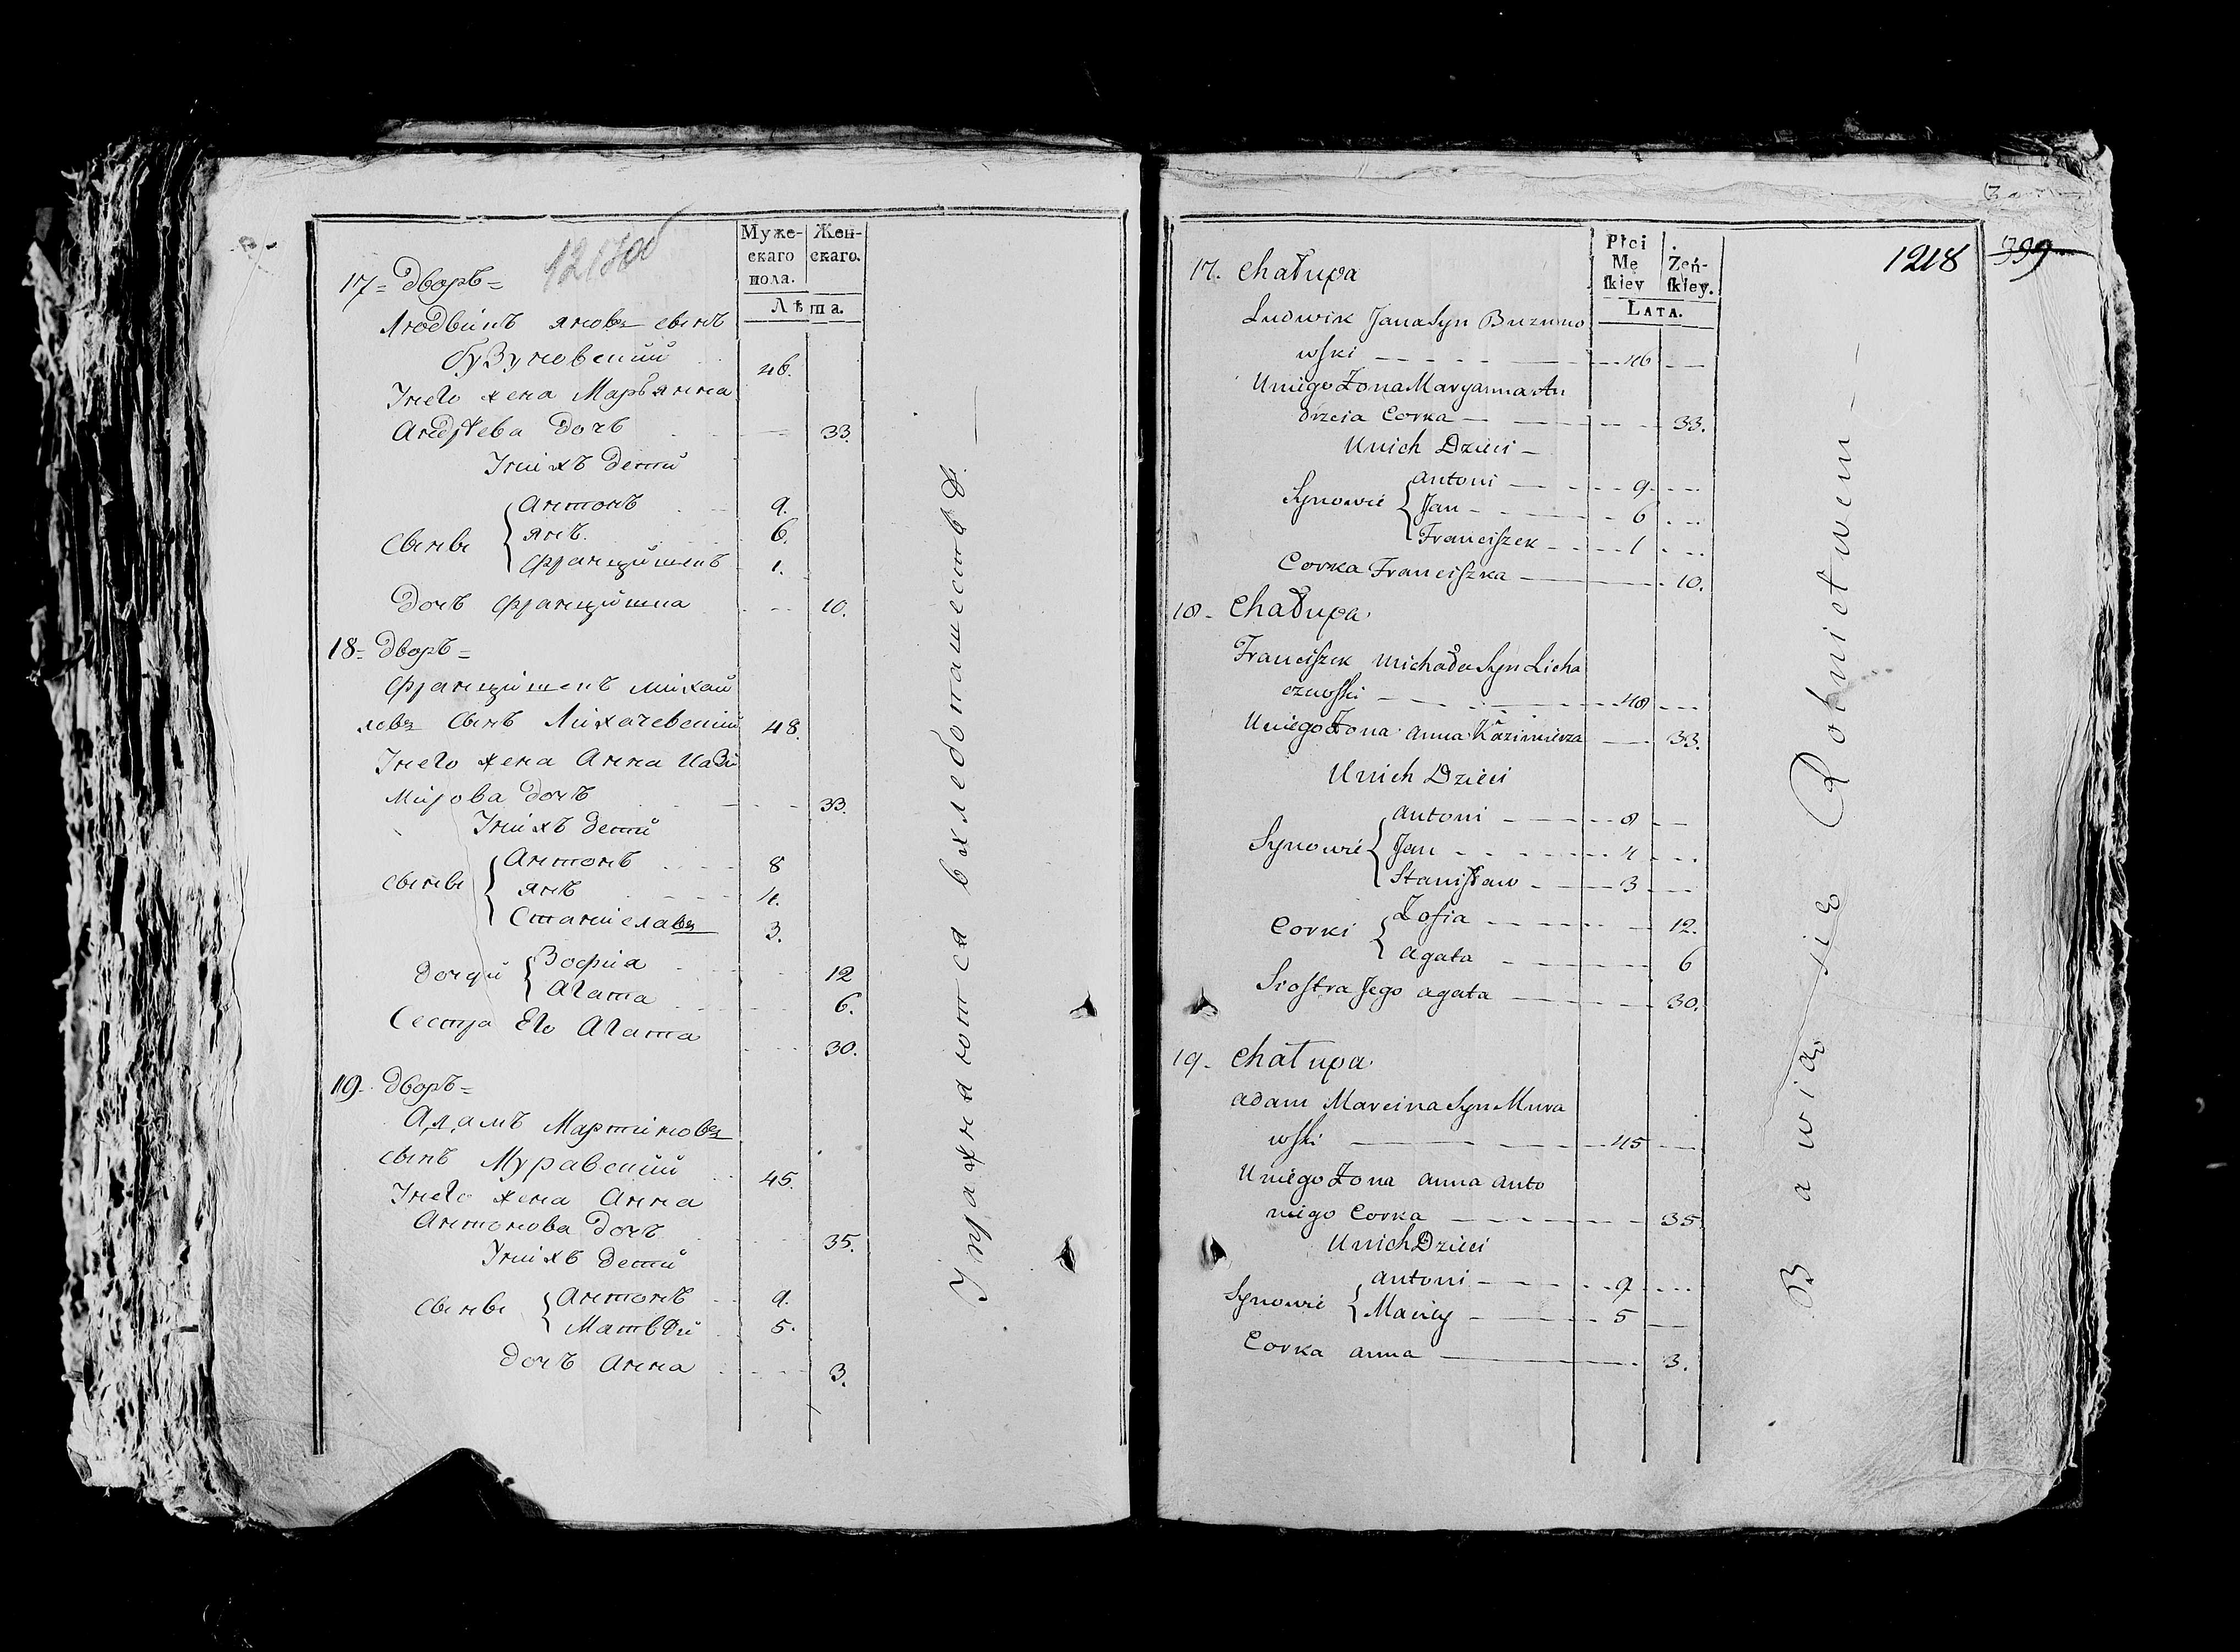 1217об
Муже-
скаго
пола.
Жен-
скаго.
Лѣта.
17= дворъ=
Людвикъ яновъ сынъ
бузуновский 46.
Унего жена Марьянна
Андреева дочъ 33.
Униxъ дети
Сынвы { Антонъ 9.
янъ. 6.
францишекъ 1.
дочъ францишка 10.
18= дворъ=
францишекъ михай
ловъ сынъ Лихачевский 48.
Унего жена Анна Кази
мирова дочъ 33.
Унихъ дети
сынвы { Антонъ 8
янъ 4.
Станиславъ 3.
дочери { Зофиа 12
Агата 6.
Сестра Его Агата 30.
19. дворъ=
Адамъ Мартиновъ
сынъ Муравский 45.
Унего жена Анна
Антонова дочъ 35.
Унихъ дети
сынвы { Антонъ 9.
Матвѣй 5.
дочъ Анна 3.
Упражнаются вхлебопашествѣ.
1218
399
Płci
Mę
skiey
Żeń-
skiey.
LATA.
17. Chałupa
Ludwik Jana Syn Buzuno
wski 46
Uniego Żona Maryanna An
drzeia Corka 33.
Unich Dzieci
Synowie { Antoni 9.
Jan 6
Franciszek 1
Corka Franciszka 10.
18. Chałupa
Franciszek Michała Syn Licha
czewski 48
Uniego Żona Anna Kazimierza 33.
Unich Dzieci
Synowie { Antoni 8
Jan 4
Stanisław 3
Corki { Zofia 12.
Agata 6
Siostra Jego Agata 30.
19. Chałupa
Adam Marcina Syn Mura
wski 45
Uniego Żona Anna Anto
niego Corka 35
Unich Dzieci
Synowie { Antoni 9
Maciey 5
Corka Anna 3.
Bawią się Rolnictwem